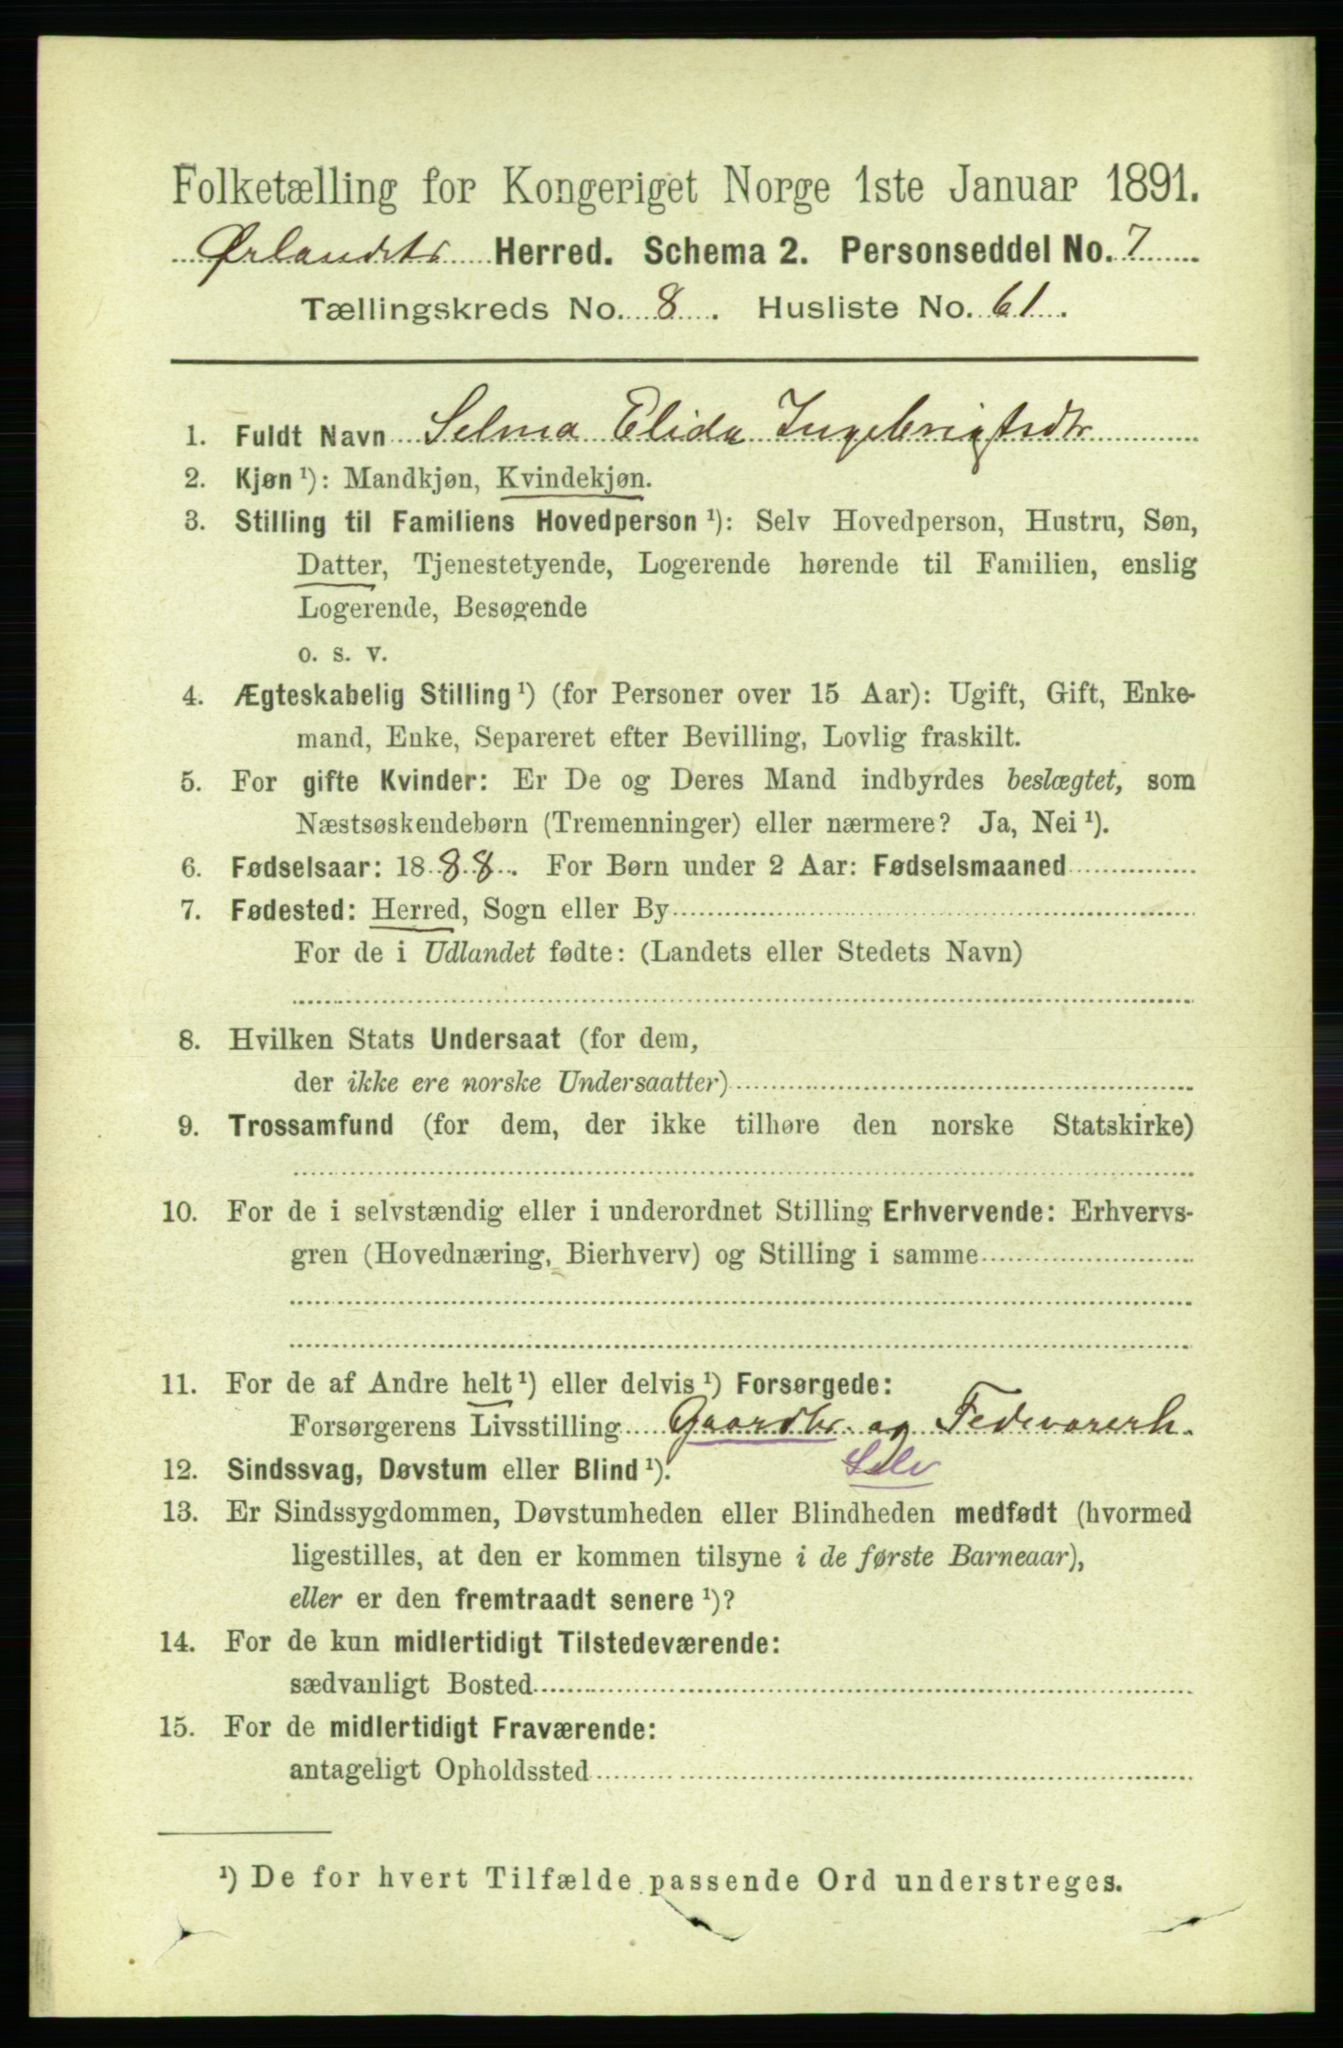 Folketælling for Kongeriget Norge 1ste Januar 1891.
Ørlandets Herred. Schema 2. Personseddel No. 7
Tællingskreds No. 8. Husliste No. 61.
1. Fuldt Navn Selma Elida Ingebrigtsdtr
2. Kjøn ¹): Mandkjøn, Kvindekjøn.
3. Stilling til Familiens Hovedperson ¹): Selv Hovedperson, Hustru, Søn,
Datter, Tjenestetyende, Logerende hørende til Familien, enslig
Logerende, Besøgende
o. s. v.
4. Ægteskabelig Stilling ¹) (for Personer over 15 Aar): Ugift, Gift, Enke-
mand, Enke, Separeret efter Bevilling, Lovlig fraskilt.
5. For gifte Kvinder: Er De og Deres Mand indbyrdes beslægtet, som
Næstsøskendebørn (Tremenninger) eller nærmere? Ja, Nei ¹).
6. Fødselsaar: 1888. For Børn under 2 Aar: Fødselsmaaned
7. Fødested: Herred, Sogn eller By
For de i Udlandet fødte: (Landets eller Stedets Navn)
8. Hvilken Stats Undersaat (for dem,
der ikke ere norske Undersaatter)
9. Trossamfund (for dem, der ikke tilhøre den norske Statskirke)
10. For de i selvstændig eller i underordnet Stilling Erhvervende: Erhvervs-
gren (Hovednæring, Bierhverv) og Stilling i samme
11. For de af Andre helt ¹) eller delvis ¹) Forsørgede:
Forsørgerens Livsstilling Gaardbr. og Fedevarerh.
12. Sindssvag, Døvstum eller Blind ¹). Selv
13. Er Sindssygdommen, Døvstumheden eller Blindheden medfødt (hvormed
ligestilles, at den er kommen tilsyne i de første Barneaar),
eller er den fremtraadt senere ¹)?
14. For de kun midlertidigt Tilstedeværende:
sædvanligt Bosted
15. For de midlertidigt Fraværende:
antageligt Opholdssted
¹) De for hvert Tilfælde passende Ord understreges.